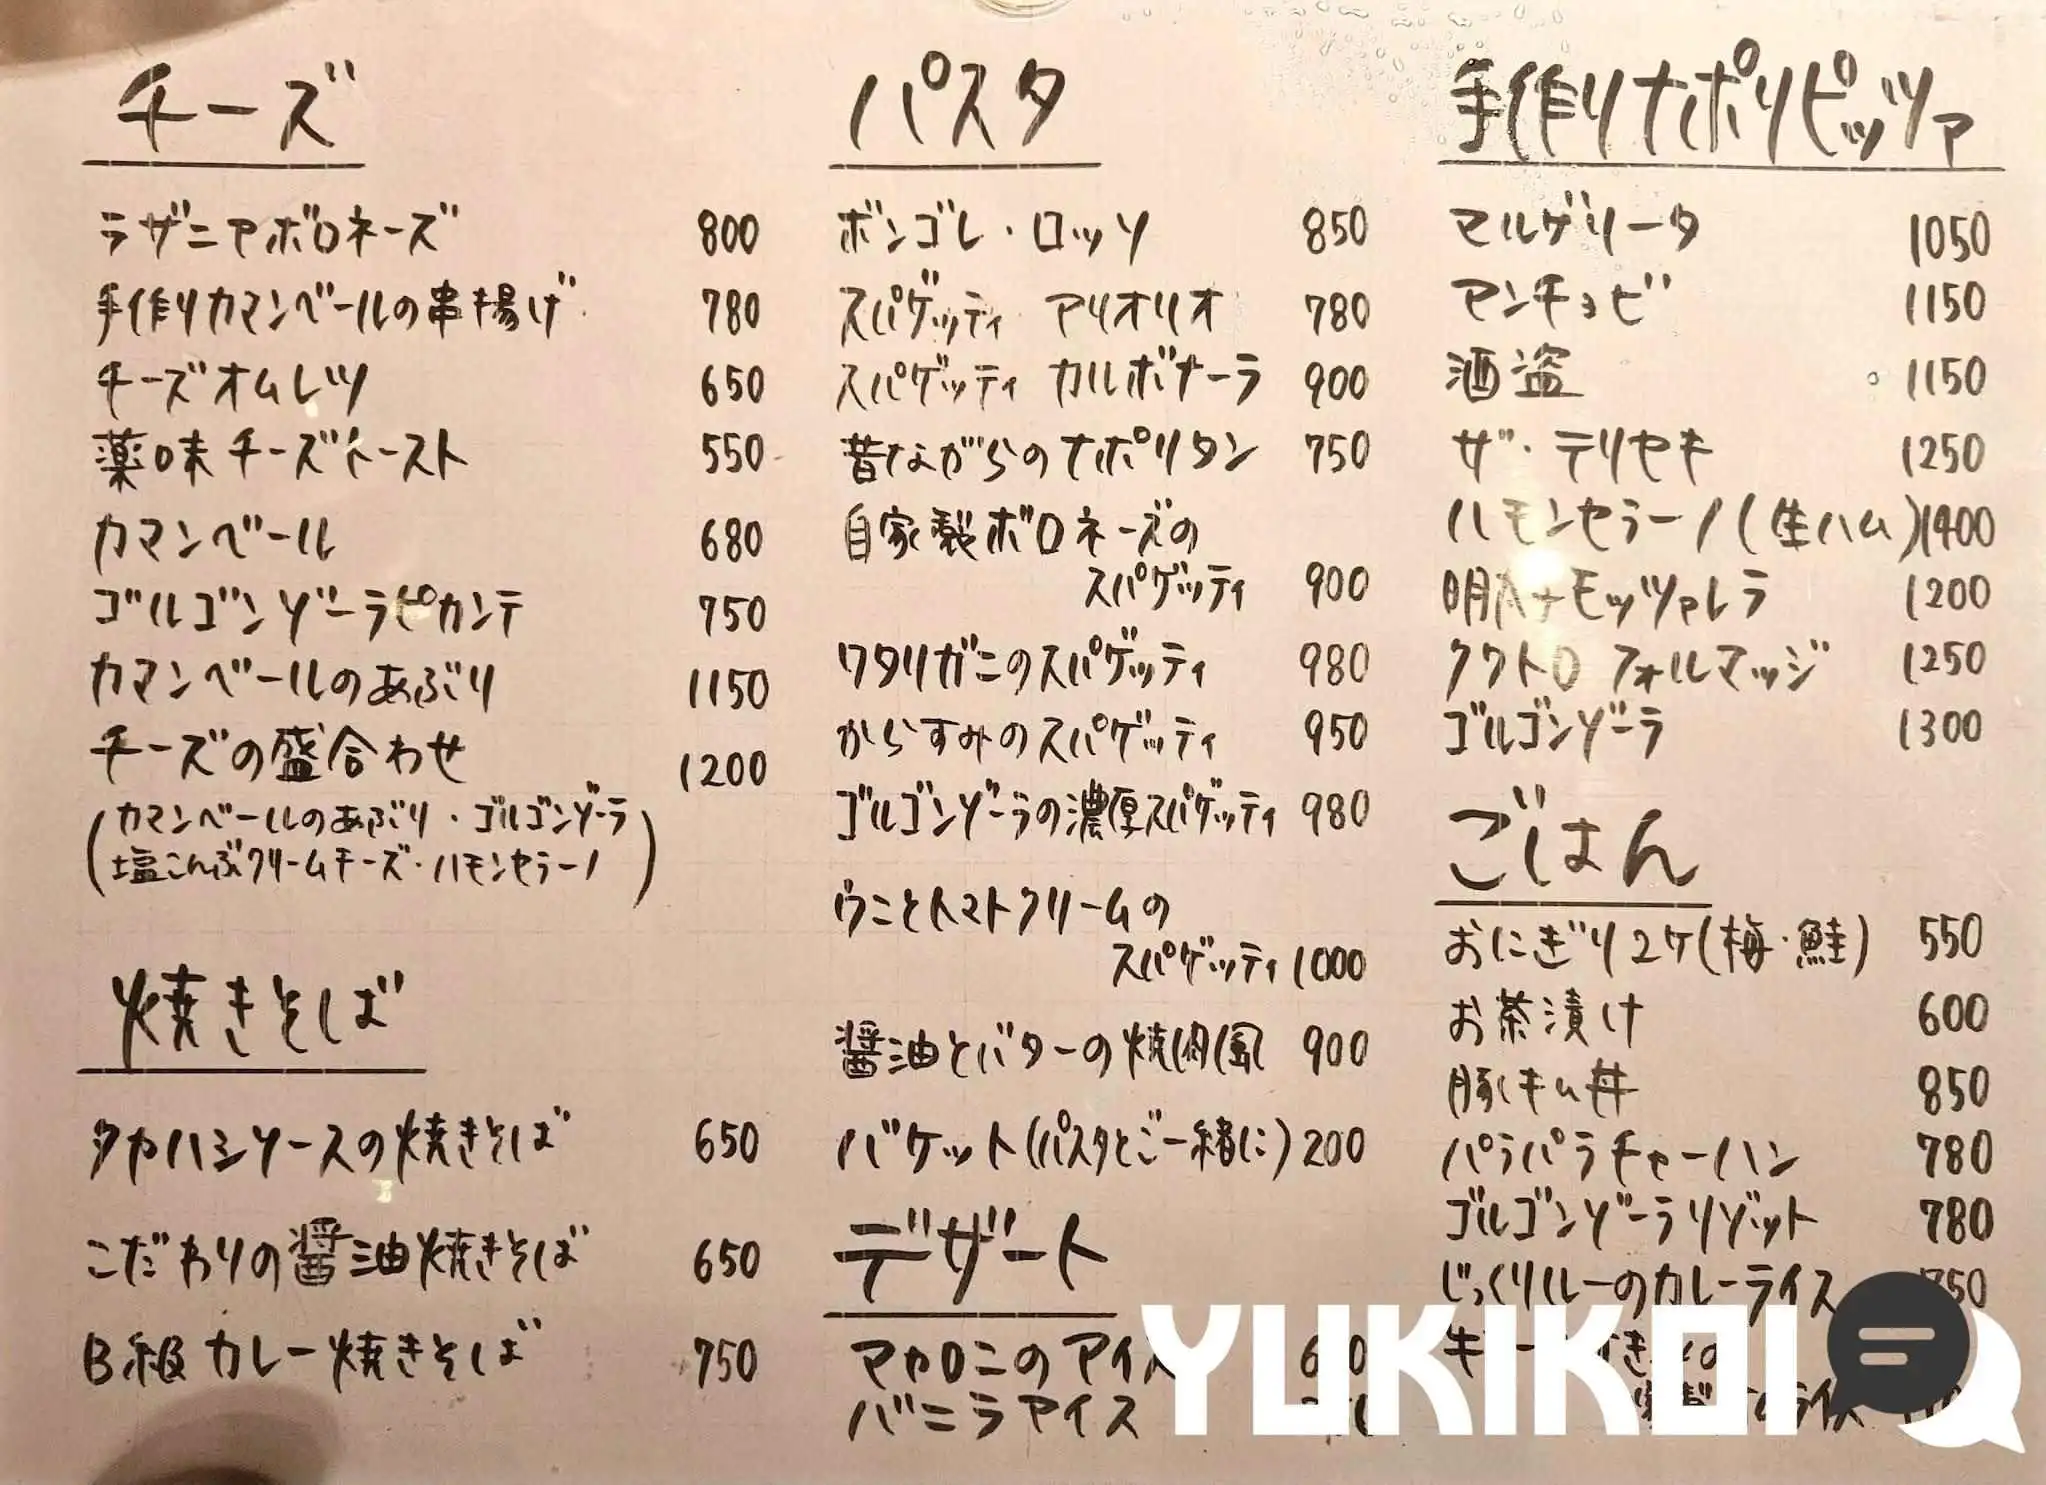 チーズ
ラザニアボロネーズ 800
手作りカマンベールの串揚げ 780
チーズオムレツ 650
薬味チーズトースト 550
カマンベール 680
ゴルゴンゾーラピカンテ 750
カマンベールのあぶり 1150
チーズの盛合わせ 1200
(カマンベールのあぶり・ゴルゴンゾーラ
塩こんぶクリームチーズ・ハモンセラーノ)
焼きそば
タカハシソースの焼きそば 650
こだわりの醤油焼きそば 650
B級カレー焼きそば 750
パスタ
ボンゴレ・ロッソ 850
スパゲッティ アリオリオ 780
スパゲッティ カルボナーラ 900
昔ながらのナポリタン 750
自家製ボロネーズの
スパゲッティ 900
ワタリガニのスパゲッティ 980
からすみのスパゲッティ 950
ゴルゴンゾーラの濃厚スパゲッティ 980
ウニとトマトクリームの
スパゲッティ 1000
醤油とバターの焼肉風 900
バケット(パスタとご一緒に) 200
デザート
マカロニのアイス
バニラアイス
手作りナポリピッツァ
マルゲリータ 1050
アンチョビ 1150
酒盗 1150
ザ・テリヤキ 1250
ハモンセラーノ(生ハム) 1400
明太モッツァレラ 1200
クワトロ フォルマッジ 1250
ゴルゴンゾーラ 1300
ごはん
おにぎり2ケ(梅・鮭) 550
お茶漬け 600
豚キム丼 850
パラパラチャーハン 780
ゴルゴンゾーラリゾット 780
じっくりルーのカレーライス
YUKIKOI